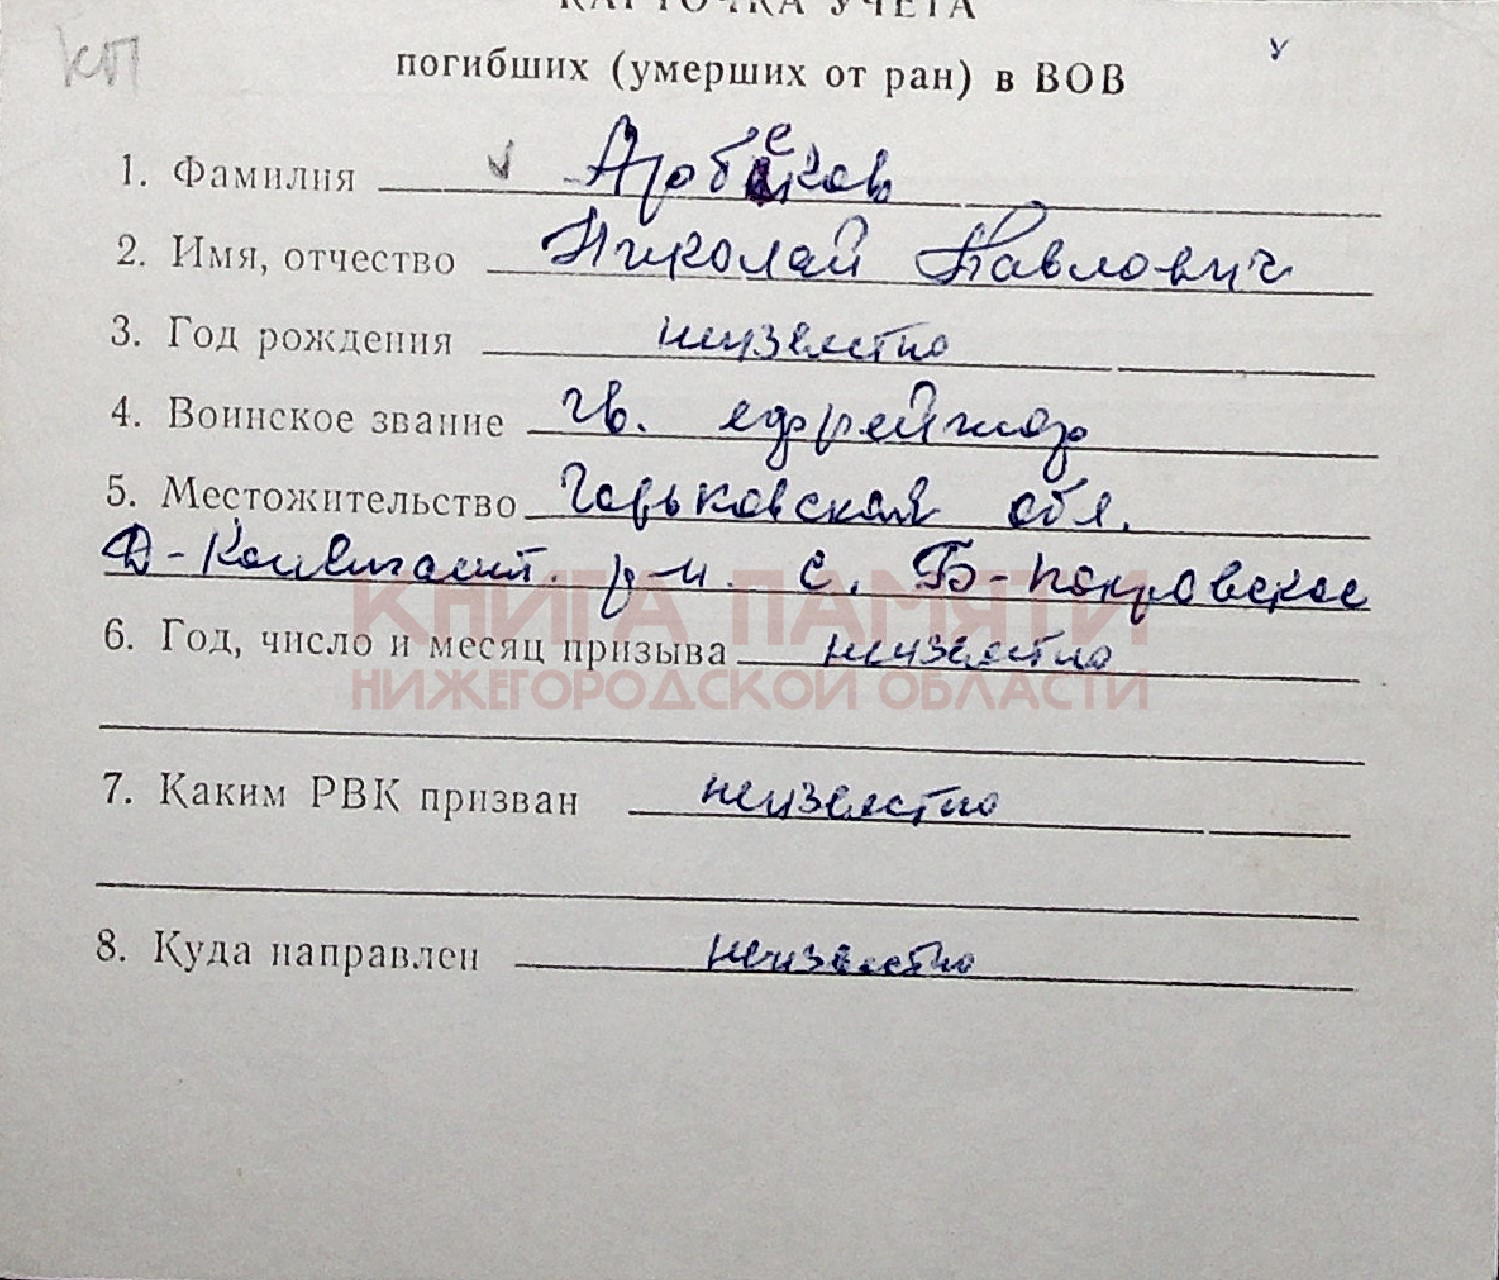 КАРТОЧКА УЧЕТА
КП
погибших (умерших от ран) в ВОВ
у
1. Фамилия Арбеков
2. Имя, отчество Николай Павлович
3. Год рождения неизвестно
4. Воинское звание гв. ефрейтор
5. Местожительство Горьковская обл.
Д-Констант. р-н. с. Б-Покровское
КНИГА ПАМЯТИ
6. Год, число и месяц призыва неизвестно
НИЖЕГОРОДСКОЙ ОБЛАСТИ
7. Каким РВК призван неизвестно
8. Куда направлен неизвестно